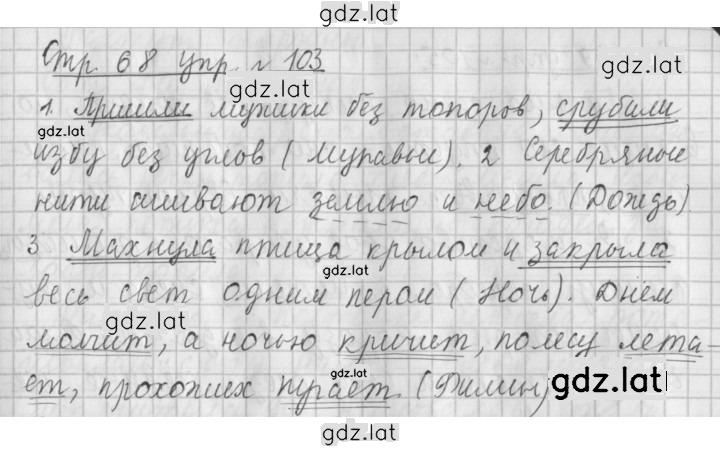 gdz.lat
Стр. 68 упр. № 103
gdz.lat
1. Пришли мужики без топоров, срубили
gdz.lat
избу без углов (Муравьи). 2 Серебряные
нити сшивают землю и небо. (Дождь)
3 Махнула птица крылом и закрыла
gdz.lat
весь свет одним пером (Ночь). Днём
gdz.lat
молчит, а ночью кричит, по лесу лета-
ет, прохожих пугает. (Филин)
gdz.lat
gdz.lat